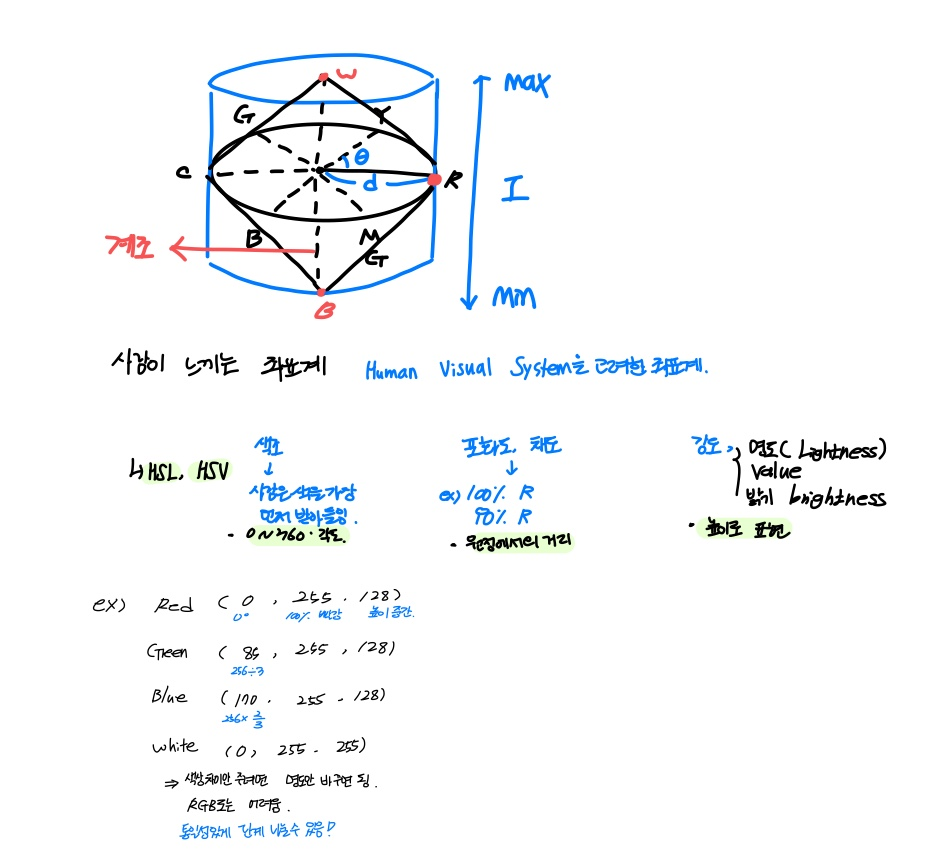 W
max
G
Y
θ
C
d
R
I
B
M
G
계조
B
min
사람이 느끼는 좌표계 Human Visual System을 고려한 좌표계.
색조 포화도, 채도 강도, 명도( Lightness)
↳ HSL, HSV ↓ ↓ Value
사람은 색을 가장 ex) 100% R 밝기 brightness
먼저 받아들임. 90% R
· 0~360· 각도. · 원점에서의 거리 · 높이로 표현
ex) Red ( 0 , 255 . 128)
0° 100% 빨강 높이 중간.
Green ( 85 , 255 , 128)
256÷3
Blue (170 . 255 . 128)
256× 2/3
white (0, 255 . 255)
⇒ 색상차이만 주려면 명도만 바꾸면 됨.
RGB로는 어려움.
통일성있게 단계 나눌수 있음!